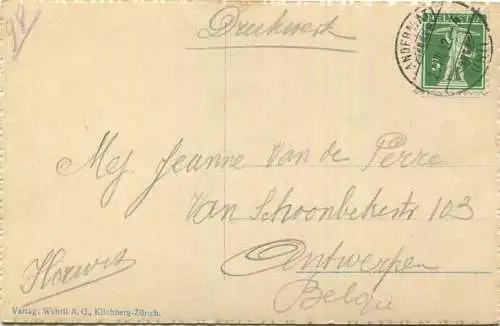 98
Druckwerk
ANDERMATT
HELVETIA
Mej Jeanne Van de Perre
Van Schoonbekestr 103
Antwerpen
Belgie
Verlag: Wehrli A. G., Kilchberg-Zürich.